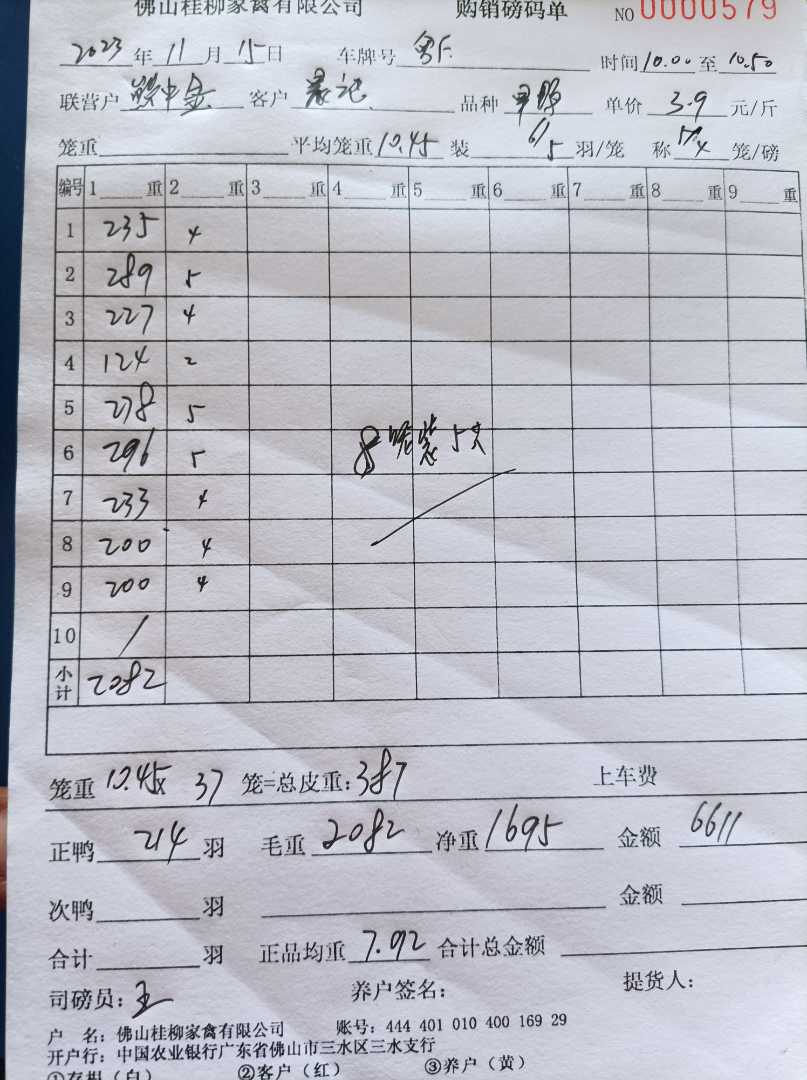 佛山桂柳家禽有限公司 购销磅码单 NO 0000579
2023年11月15日 车牌号 粤F. 时间10.00至10.50
联营户 中金 客户 晨记 品种 单价 3.9 元/斤
笼重 平均笼重10.45 装 6/5 羽/笼 称 5/4 笼/磅
编号 1 重 2 重 3 重 4 重 5 重 6 重 7 重 8 重 9 重
1 235 4
2 289 5
3 227 4
4 124 2
5 278 5
6 296 5
8笼装5只
7 233 4
8 200 4
9 200 4
10 /
小计 2082
笼重 10.45x 37 笼=总皮重:387 上车费
正鸭 214 羽 毛重 2082 净重 1695 金额 6611
次鸭 羽 金额
合计 羽 正品均重 7.92 合计总金额
司磅员:王 养户签名: 提货人:
户 名:佛山桂柳家禽有限公司 账号:444 401 010 400 169 29
开户行:中国农业银行广东省佛山市三水区三水支行
①存根(白) ②客户(红) ③养户(黄)